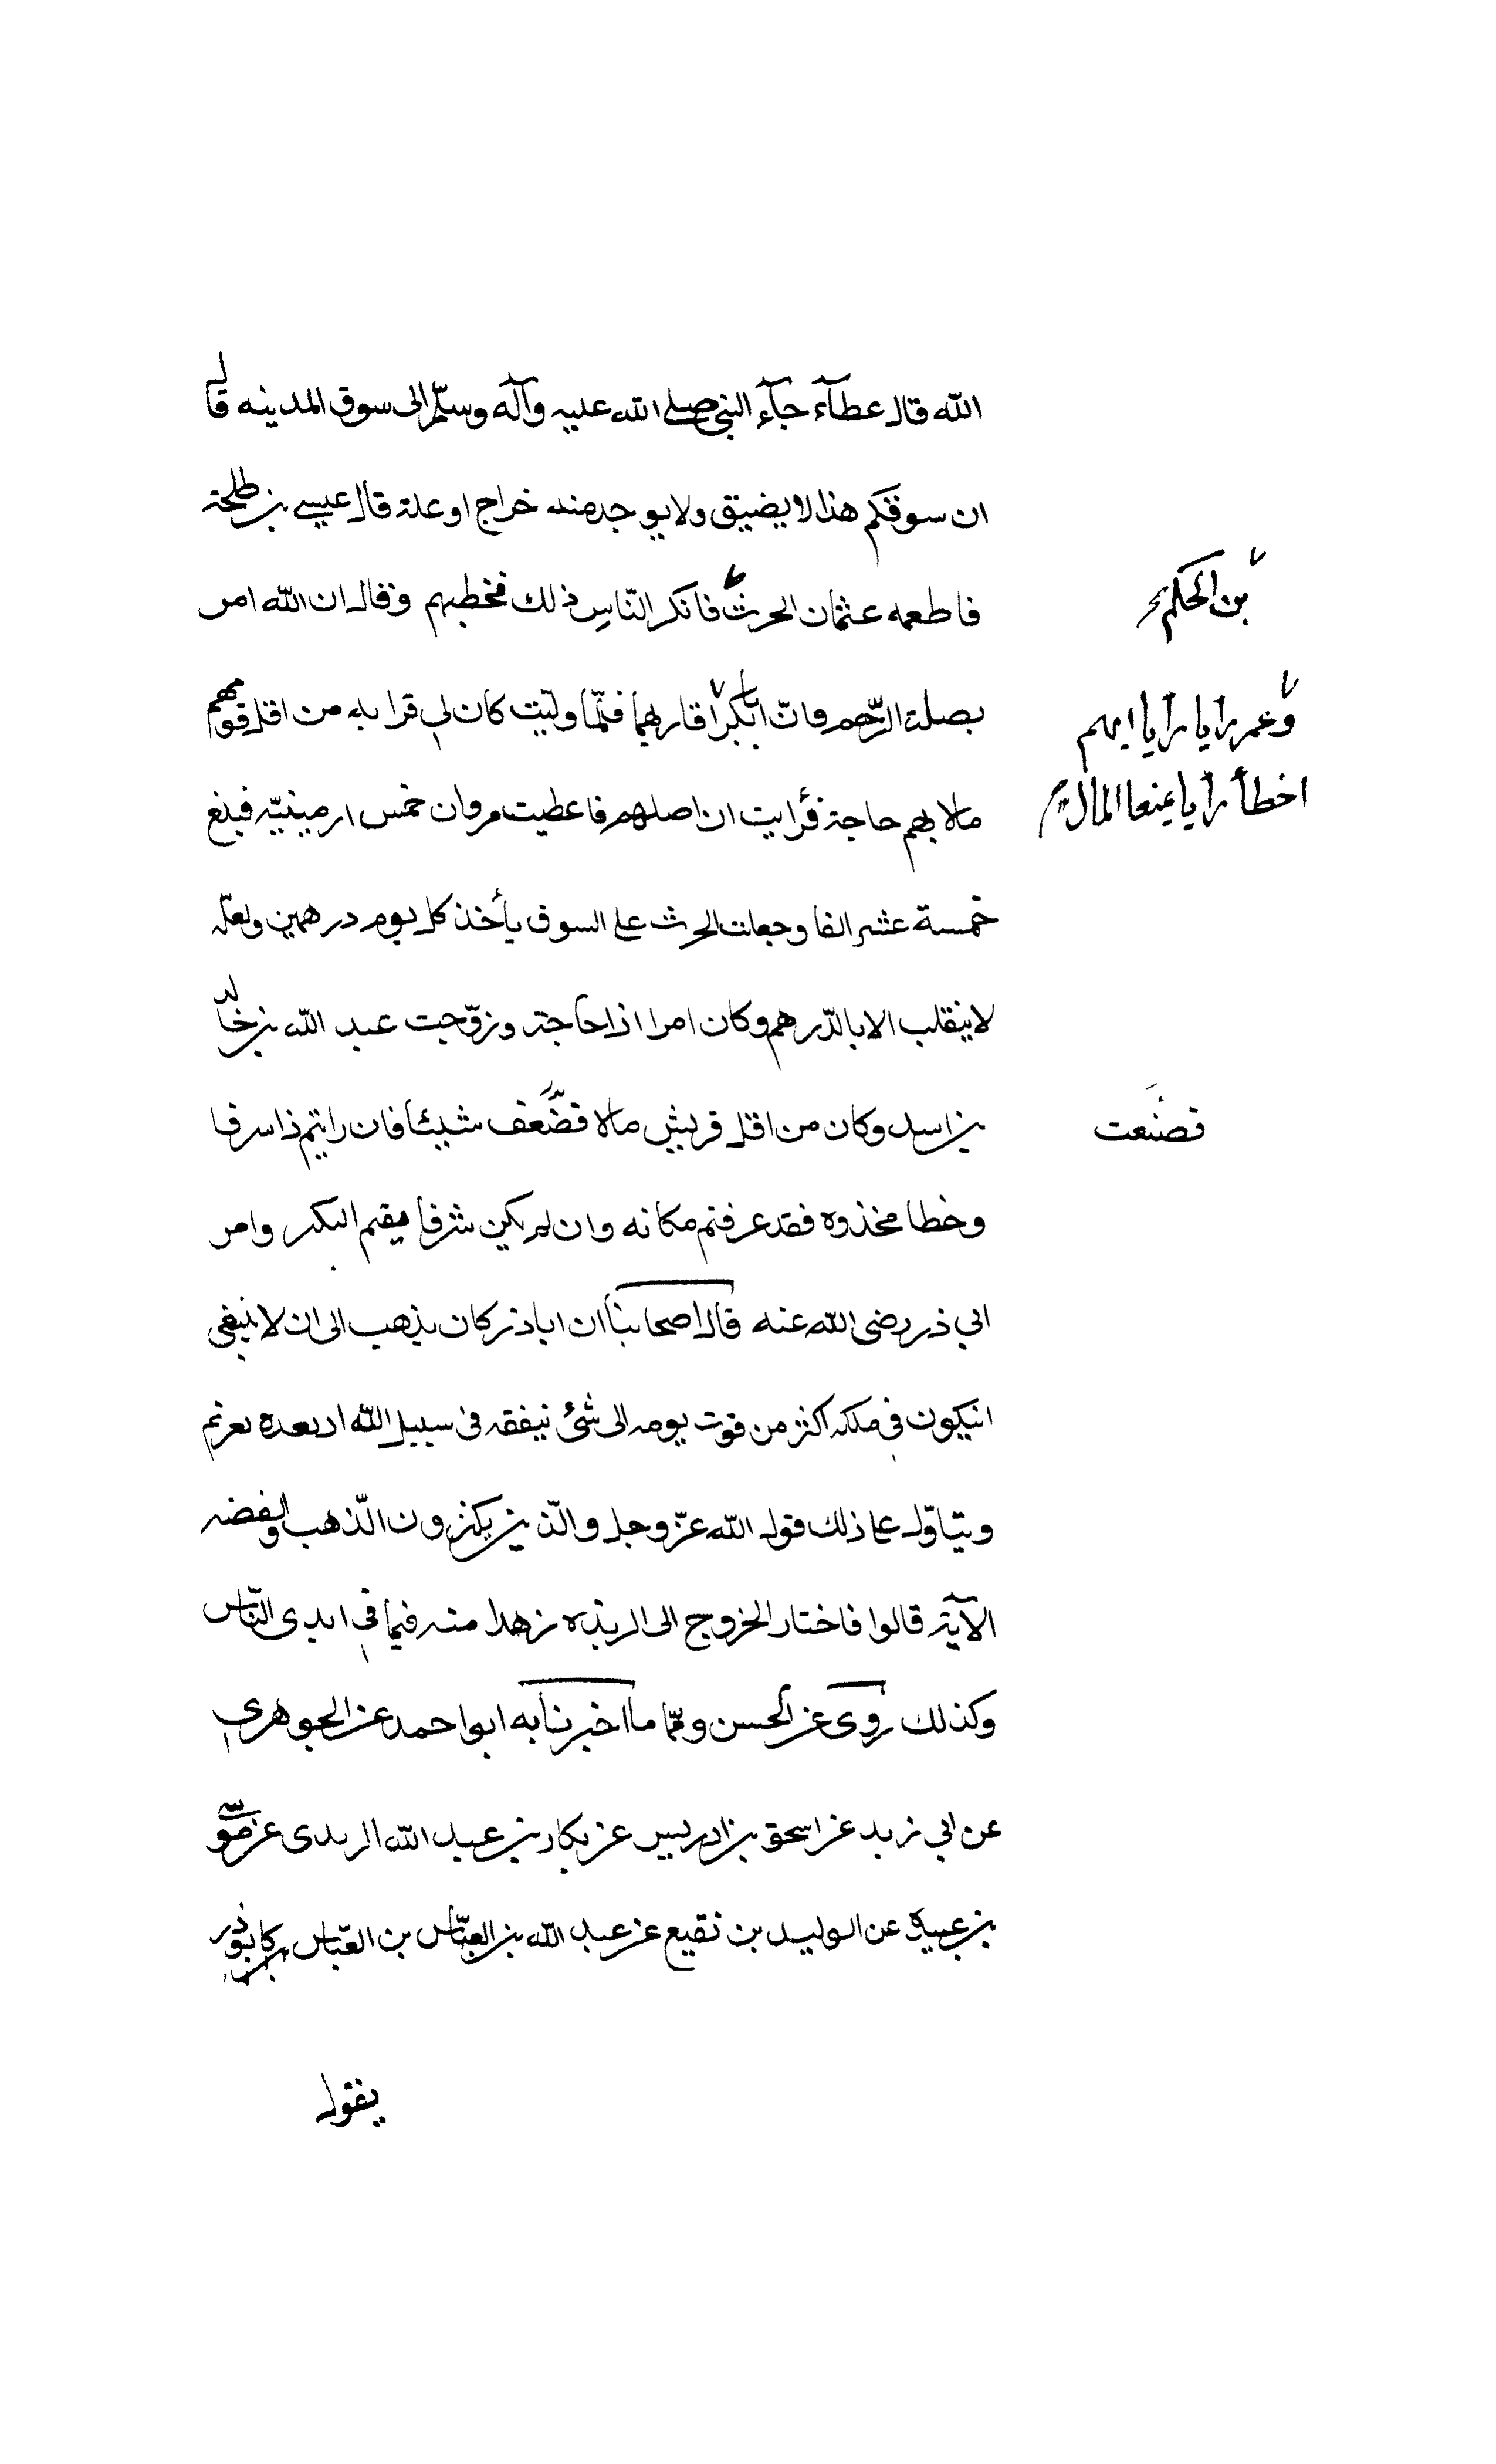 الله قال عطآء جآء النبى صلى الله عليه وآله وسلّم الى سوق المدينه قال
ان سوقكم هذا لا يضيق ولا يوجد منه خراج او علة قال عيسى بن طلحة
فاطعمه عثمان الحرث فانكر النّاس ذلك فخطبهم وقال ان الله امر
بن الحكم
بصلة الرّحم وانّ ابابكر اقاربهما فلمّا وليت كان لي قرابه من اقل قومهم
وعمر رأيا رأيا ايهم
اخطأ رأيا يمنعا المال
مالا بهم حاجة فرأيت ان اصلهم فاعطيت مروان خمس ارمينيّه فبلغ
خمسة عشر الفا وجعلت الحرث على السوق يأخذ كل يوم درهمين ولعلّه
لا ينقلب الا بالدّرهم وكان امرا ذا حاجة وزوّجت عبد الله بن خالد
بن اسد وكان من اقل قريش مالا فضّعف شيئا فان رايتم ذا سرفا
فصنعت
وخطا فخذوه فقد عرفتم مكانه وان لم يكن شرفا اليكم وامر
ابي ذر رضى الله عنه قال اصحابنا ان اباذر كان يذهب الى ان لا ينبغى
انيكون في ملكه اكثر من قوت يومه الى شئ ينفقه فى سبيل الله
ويتاوّل على ذلك قول الله عزّ وجل والّذين يكنزون الذّهب والفضه
الآية قالوا فاختار الخروج الى الربذه زهدا منه فيما في ايدى النّاس
وكذلك روى عن الحسن وممّا ما اخبرنا به ابو احمد عن الجوهرى
عن ابي زيد عن اسحق بن ادريس عن بكار بن عبد الله الربدى عن موسى
بن عبيدة عن الوليد بن نقيع عن عبد الله بن العبّاس بن العبّاس كان ابوذر
يقول